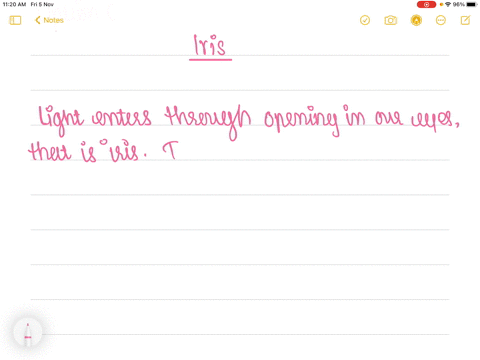 11:20 AM Fri 5 Nov
96%
Notes
Iris
Light enters through opening in our eyes,
that is iris. T